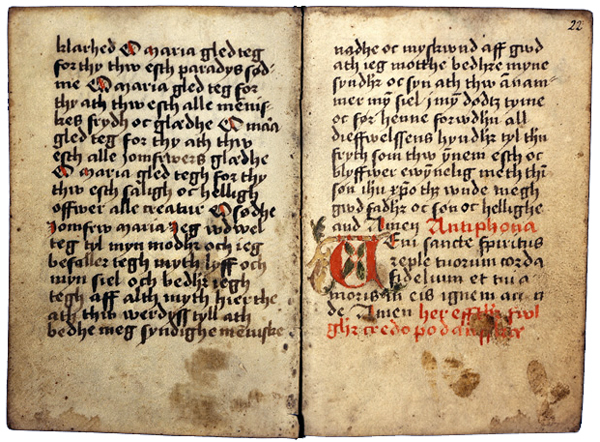 klarhed O maria gled teg
for thy thw esth paradys sød-
me O maria gled teg for
thy ath thw esth alle mēnis-
kes frydh oc glædhe O mā̄a
gled teg for thy ath thw
esth alle Jomfrwers glædhe
O maria gled tegh for thy
thw esth saligh oc helligh
offwer alle creatur O sødhe
Jomfrw maria Jeg wd wel
teg tyl myn modhr och ieg
befaller tegh myth lyff och
myn siel och bedhr iegh
tegh aff alth myth hierthe
ath thw werdyss tyll ath
bedhe meg syndighe mēniske
22
nadhe oc myskwnd aff gwd
ath ieg motthe bedhre myne
syndhr oc syn ath thw ānam-
mer mȳ siel i mȳ dødz tyme
oc før henne forwdhn all
dieffwelssens hyndhr tyl thn
fryth som thw ȳnem esth oc
blyffwer ewȳnelig meth thī
søn ihu xp̄o thz wnde megh
gwd fadhr oc søn oc hellighe
and Amen Antiphona
Ueni sancte spiritus
reple tuorum corda
fidelium et tui a
moris in eis ignem accen
de Amen her efftr
credo po